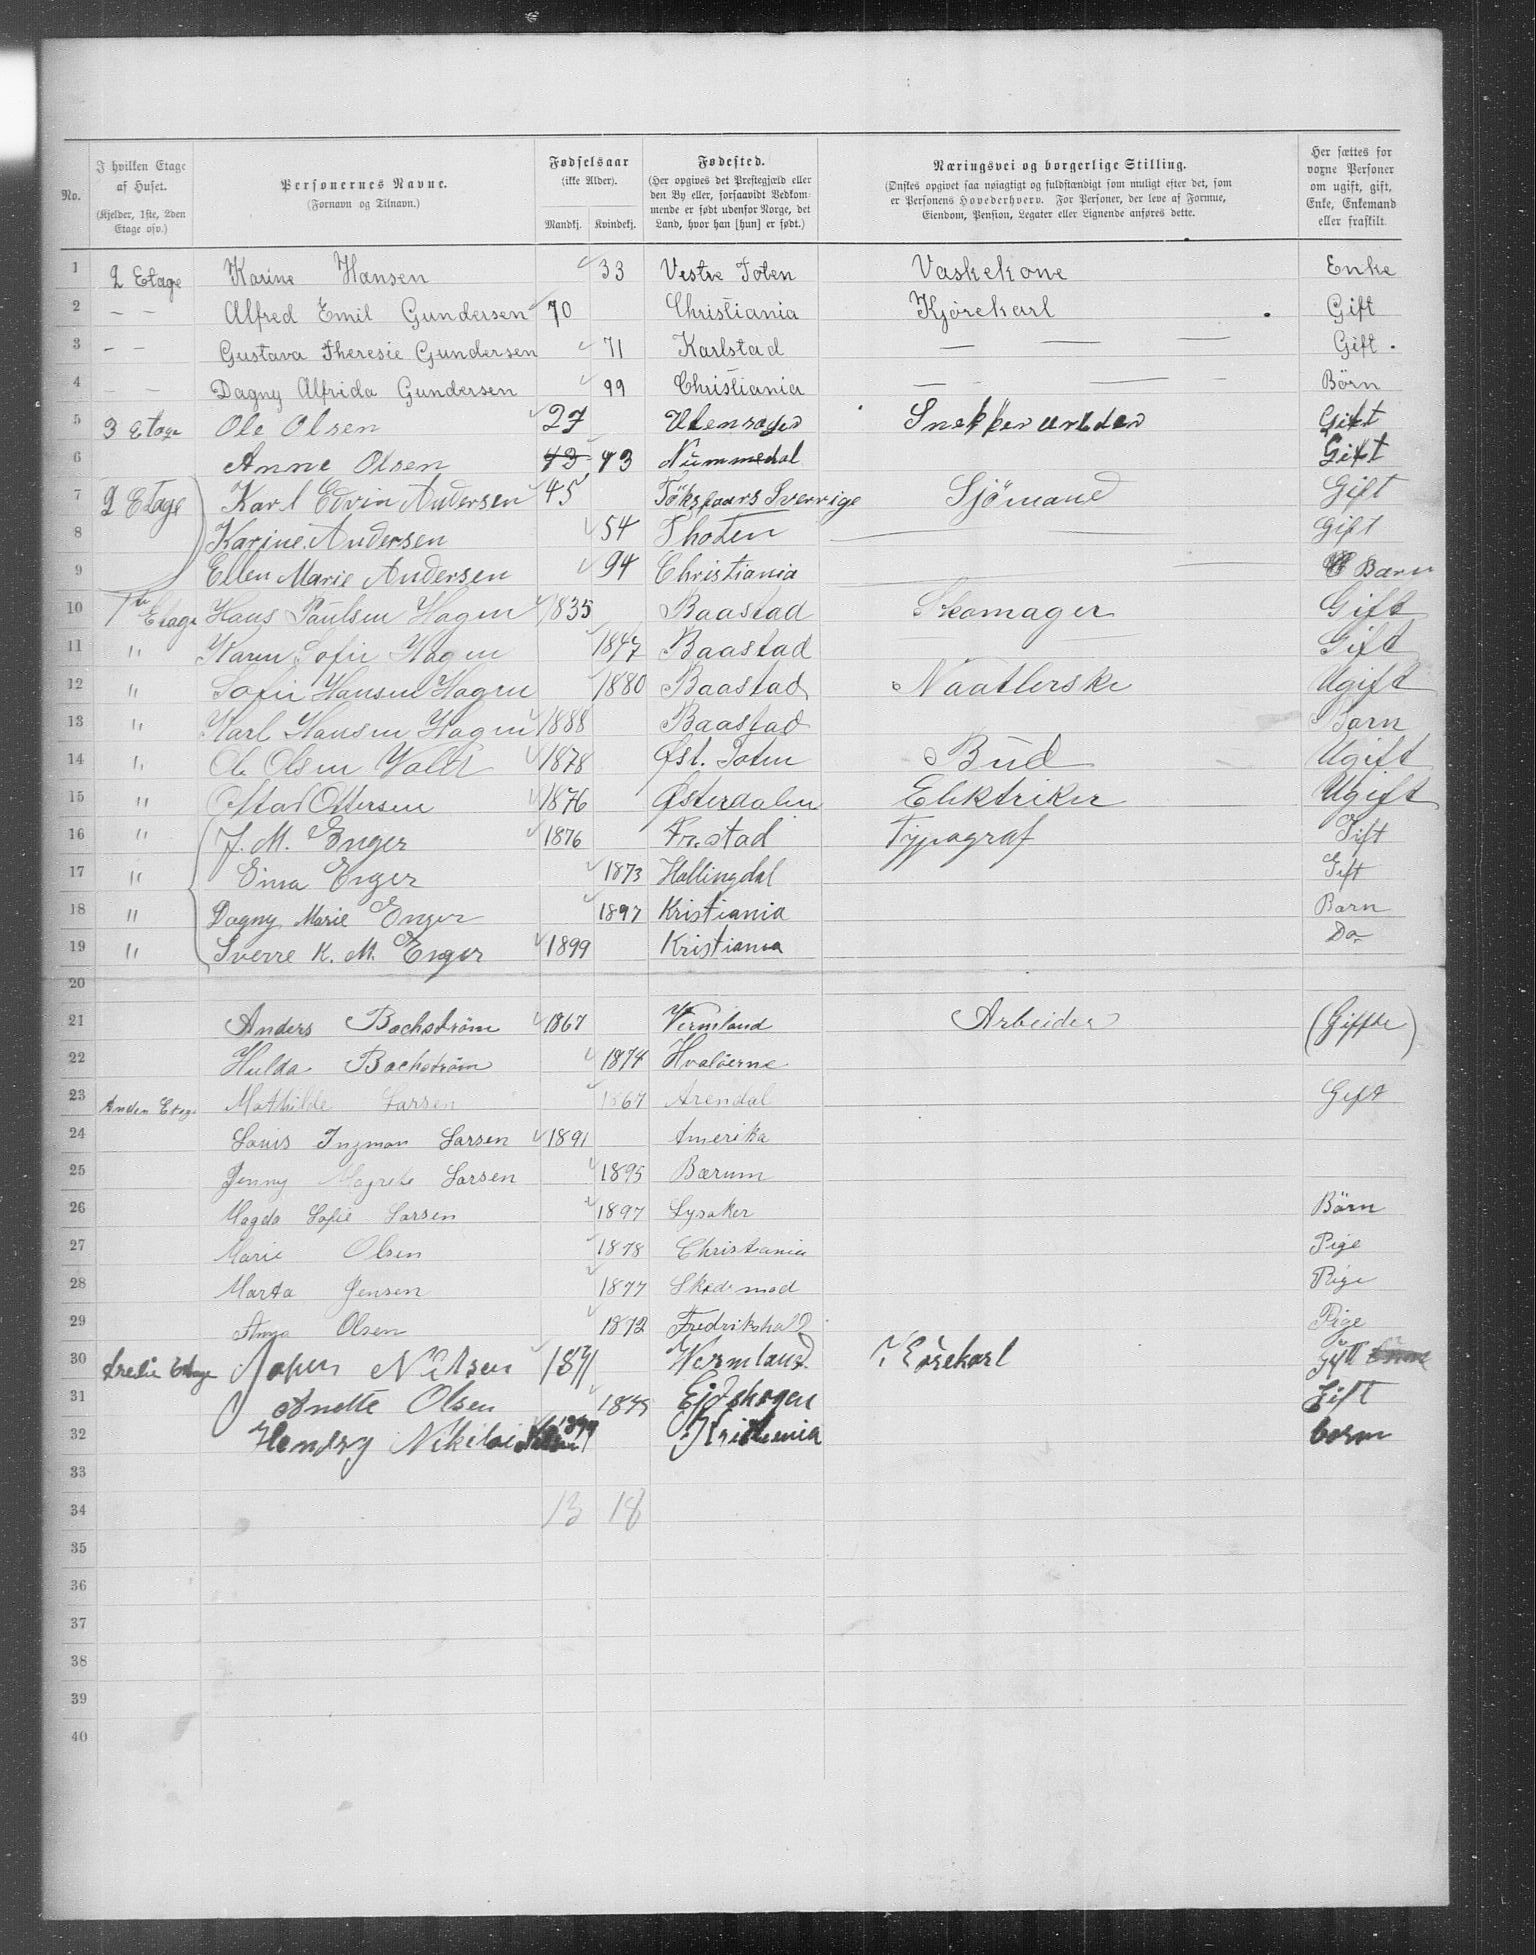 No.
I hvilken Etage af Huset.
(Kjelder, 1ste, 2den Etage osv.)
Personernes Navne.
(Fornavn og Tilnavn.)
Fødselsaar
(ikke Alder).
Mandkj. Kvindekj.
Fødested.
(Her opgives det Præstegjæld eller
den By eller, forsaavidt Vedkom-
mende er født udenfor Norge, det
Land, hvor han [hun] er født.)
Næringsvei og borgerlige Stilling.
(Ønskes opgivet saa nøiagtigt og fuldstændigt som muligt efter det, som
er Personens Hovederhverv. For Personer, der leve af Formue,
Eiendom, Pension, Legater eller Lignende anføres dette.
Her sættes for
voxne Personer
om ugift, gift,
Enke, Enkemand
eller fraskilt.
1 2 Etage Karine Hansen 33 Vestre Toten Vaskekone Enke
2 — — Alfred Emil Gundersen 70 Christiania Kjørekarl Gift
3 — — Gustava Theresie Gundersen 71 Karlstad — — — Gift.
4 — — Dagny Alfrida Gundersen 99 Christiania — — — Børn
5 3 Etage Ole Olsen 27 Snekker Gift
6 Anne Olsen 43 43 Nummedal Gift
7 2 Etage Karl Edvin Andersen 45 Sverrige Sjömand Gift
8 Karine Andersen 54 Thoten Gift
9 Ellen Marie Andersen 94 Christiania Barn
10 Etage Hans Paulsen Hagen 1835 Baastad Skomager Gift
11 " Karen Sofie Hagen 1847 Baastad Gift
12 " Sofie Hansen Hagen 1880 Baastad Naatlerske Ugift
13 " Karl Hansen Hagen 1888 Baastad Barn
14 " Ole Olsen 1878 Øst. Toten Bud Ugift
15 " Ottersen 1876 Østerdalen Elektriker Ugift
16 " J. M. Enger 1876 Fr.stad Typograf Gift
17 " Enger 1873 Hallingdal Gift
18 " Dagny Marie Enger 1897 Kristiania Barn
19 " Sverre K. M. Enger 1899 Kristiania Do
20
21 Anders Bachstrøm 1867 Vermland Arbeider (Giftte)
22 Hulda Bachstrøm 1874 Hvaløerne
23 Anden Etage Mathilde Larsen 1867 Arendal Gift
24 Louis Ingman Larsen 1891 Amerika
25 Jenny Magrete Larsen 1895 Bærum
26 Magda Sofie Larsen 1897 Lysaker Börn
27 Marie Olsen 1878 Christania Pige
28 Marta Jensen 1877 Skedsmod Pige
29 Olsen 1872 Fredrikshald Pige
30 Etage Nilsen 1871 Wermland Kørekarl Gift
31 Anette Olsen Gift
32 Hendry Nikolai 1899 Kristiania barn
33
34 13 18
35
36
37
38
39
40